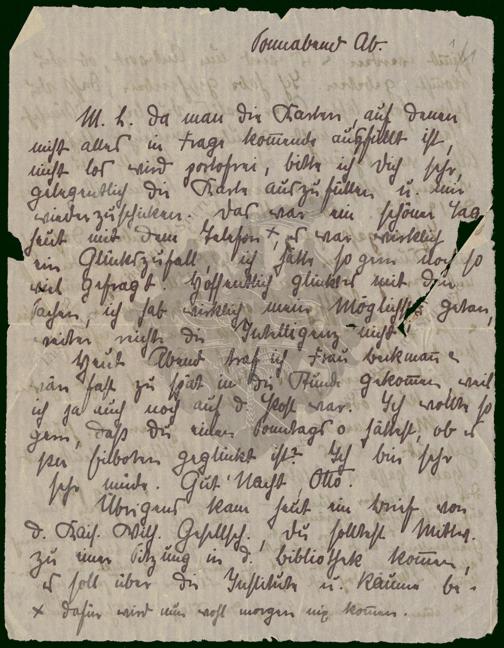 Sonnabend Ab.
M. L. Da man die Karten, auf denen
nicht alles in Frage kommende ausgefüllt ist,
nicht los wird portofrei, bitte ich Dich sehr,
gelegentlich die Karte auszufüllen u. mir
wiederzuschicken. Das war ein schöner Tag
heut mit dem Telefon x, es war wirklich
ein Glückszufall, ich hätte so gern noch so
viel gefragt. Hoffentlich glückts mit den
Sachen, ich hab wirklich mein Möglichstes getan,
weiter reicht die Intelligenz nicht!
Heut Abend traf ich Frau Beckmann
wär fast zu spät in die Stunde gekommen, weil
ich ja auch noch auf d. Post war. Ich wollte so
gern, daß Du einen Sonntags hättest, ob es
geglückt ist? Ich bin sehr
sehr müde. Gut' Nacht, Otto.
Übrigens kam heut ein Brief von
d. Kais. Wilh. Gesellsch., Du solltest Mittw.
zu einer Sitzung in d. Bibliothek kommen,
es soll über die Institute u. Räume be-
x dafür wird nun wohl morgen nix kommen.